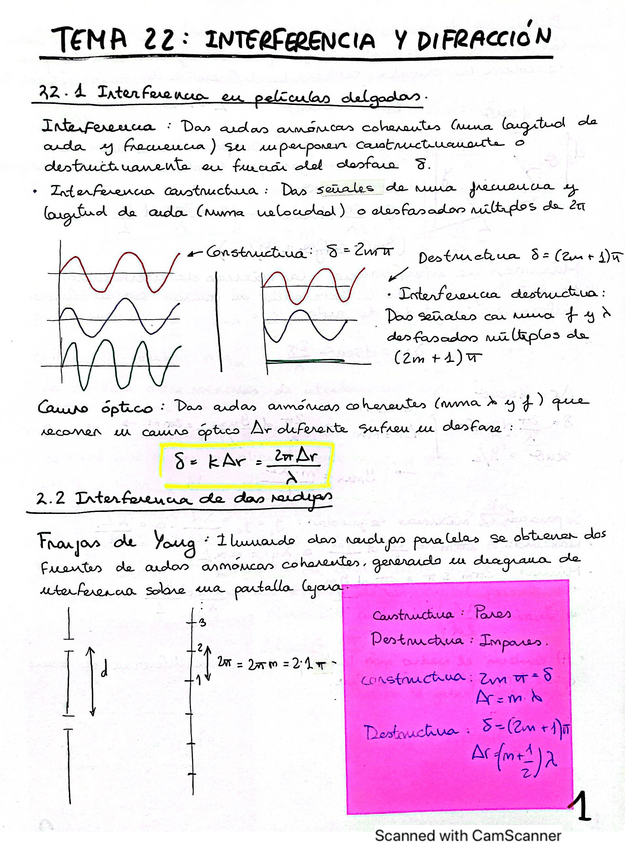 TEMA 22: INTERFERENCIA Y DIFRACCIÓN
22.1 Interferencia en películas delgadas.
Interferencia: Dos ondas armónicas coherentes (misma longitud de
onda y frecuencia) se superponen constructivamente o
destructivamente en función del desfase δ.
· Interferencia constructiva: Dos señales de misma frecuencia y
longitud de onda (misma velocidad) o desfasados múltiplos de 2π
← Constructiva: δ = 2mπ
Destructiva δ = (2m+1)π
· Interferencia destructiva:
Dos señales con misma f y λ
desfasados múltiplos de
(2m+1)π
Camino óptico: Dos ondas armónicas coherentes (misma λ y f) que
recorren un camino óptico Δr diferente sufren un desfase:
δ = kΔr = 2πΔr / λ
2.2 Interferencia de dos rendijas
Franjas de Young: Iluminando dos rendijas paralelas se obtienen dos
fuentes de ondas armónicas coherentes, generando un diagrama de
interferencia sobre una pantalla lejana.
d
3
2
1
2π = 2πm = 2·1π
Constructiva: Pares
Destructiva: Impares.
constructiva: 2mπ = δ
Δr = m·λ
Destructiva: δ = (2m+1)π
Δr = (m + 1/2)λ
1
Scanned with CamScanner